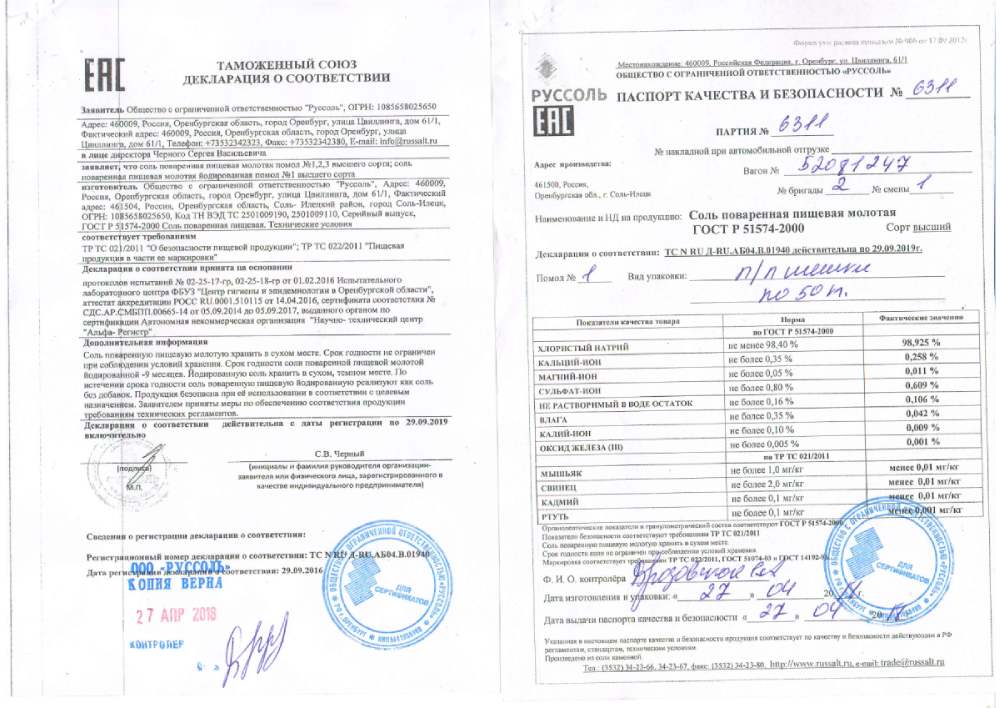 ЕАС
ТАМОЖЕННЫЙ СОЮЗ
ДЕКЛАРАЦИЯ О СООТВЕТСТВИИ
Заявитель Общество с ограниченной ответственностью "Руссоль", ОГРН: 1085658025650
Адрес: 460009, Россия, Оренбургская область, город Оренбург, улица Цвиллинга, дом 61/1,
Фактический адрес: 460009, Россия, Оренбургская область, город Оренбург, улица
Цвиллинга, дом 61/1, Телефон: +73532342323, Факс: +73532342380, E-mail: info@russalt.ru
в лице директора Черного Сергея Васильевича
заявляет, что соль поваренная пищевая молотая помол №1,2,3 высшего сорта; соль
поваренная пищевая молотая йодированная помол №1 высшего сорта
изготовитель Общество с ограниченной ответственностью "Руссоль", Адрес: 460009,
Россия, Оренбургская область, город Оренбург, улица Цвиллинга, дом 61/1, Фактический
адрес: 461504, Россия, Оренбургская область, Соль- Илецкий район, город Соль-Илецк,
ОГРН: 1085658025650, Код ТН ВЭД ТС 2501009190, 2501009110, Серийный выпуск,
ГОСТ Р 51574-2000 Соль поваренная пищевая. Технические условия
соответствует требованиям
ТР ТС 021/2011 "О безопасности пищевой продукции"; ТР ТС 022/2011 "Пищевая
продукция в части ее маркировки"
Декларация о соответствии принята на основании
протоколов испытаний № 02-25-17-гр, 02-25-18-гр от 01.02.2016 Испытательного
лабораторного центра ФБУЗ "Центр гигиены и эпидемиологии в Оренбургской области",
аттестат аккредитации РОСС RU.0001.510115 от 14.04.2016, сертификата соответствия №
СДС.АР.СМБПП.00665-14 от 05.09.2014 до 05.09.2017, выданного органом по
сертификации Автономная некоммерческая организация "Научно- технический центр
"Альфа- Регистр"
Дополнительная информация
Соль поваренную пищевую молотую хранить в сухом месте. Срок годности не ограничен
при соблюдении условий хранения. Срок годности соли поваренной пищевой молотой
йодированной -9 месяцев. Йодированную соль хранить в сухом, темном месте. По
истечении срока годности соль поваренную пищевую йодированную реализуют как соль
без добавок. Продукция безопасна при её использовании в соответствии с целевым
назначением. Заявителем приняты меры по обеспечению соответствия продукции
требованиям технических регламентов.
Декларация о соответствии действительна с даты регистрации по 29.09.2019
включительно
С.В. Черный
(подпись)
М.П.
(инициалы и фамилия руководителя организации-
заявителя или физического лица, зарегистрированного в
качестве индивидуального предпринимателя)
Сведения о регистрации декларации о соответствии:
Регистрационный номер декларации о соответствии: ТС N RU Д-RU.АБ04.В.01940
Дата регистрации декларации о соответствии: 29.09.2016
ООО «РУССОЛЬ»
КОПИЯ ВЕРНА
27 АПР 2018
КОНТРОЛЕР
ДЛЯ
СЕРТИФИКАТОВ
Местонахождение: 460009, Российская Федерация, г. Оренбург, ул. Цвиллинга, 61/1
ОБЩЕСТВО С ОГРАНИЧЕННОЙ ОТВЕТСТВЕННОСТЬЮ «РУССОЛЬ»
РУССОЛЬ
ЕАС
ПАСПОРТ КАЧЕСТВА И БЕЗОПАСНОСТИ № 6311
ПАРТИЯ № 6311
№ накладной при автомобильной отгрузке
Адрес производства:
Вагон № 52081247
461500, Россия,
Оренбургская обл., г. Соль-Илецк
№ бригады 2 № смены 1
Наименование и НД на продукцию: Соль поваренная пищевая молотая
ГОСТ Р 51574-2000 Сорт высший
Декларация о соответствии: ТС N RU Д-RU.АБ04.В.01940 действительна по 29.09.2019г.
Помол № 1 Вид упаковки: п/п мешки
по 50 кг.
Показатели качества товара Норма Фактические значения
по ГОСТ Р 51574-2000
ХЛОРИСТЫЙ НАТРИЙ не менее 98,40 % 98,925 %
КАЛЬЦИЙ-ИОН не более 0,35 % 0,258 %
МАГНИЙ-ИОН не более 0,05 % 0,011 %
СУЛЬФАТ-ИОН не более 0,80 % 0,609 %
НЕ РАСТВОРИМЫЙ В ВОДЕ ОСТАТОК не более 0,16 % 0,106 %
ВЛАГА не более 0,35 % 0,042 %
КАЛИЙ-ИОН не более 0,10 % 0,009 %
ОКСИД ЖЕЛЕЗА (III) не более 0,005 % 0,001 %
по ТР ТС 021/2011
МЫШЬЯК не более 1,0 мг/кг менее 0,01 мг/кг
СВИНЕЦ не более 2,0 мг/кг менее 0,01 мг/кг
КАДМИЙ не более 0,1 мг/кг менее 0,01 мг/кг
РТУТЬ не более 0,1 мг/кг менее 0,001 мг/кг
Органолептические показатели и гранулометрический состав соответствуют ГОСТ Р 51574-2000
Показатели безопасности соответствуют требованиям ТР ТС 021/2011
Соль поваренную пищевую молотую хранить в сухом месте.
Срок годности соли не ограничен при соблюдении условий хранения
Маркировка соответствует требованиям ТР ТС 022/2011, ГОСТ 51074-03 и ГОСТ 14192-96
Ф. И. О. контролёра
Дата изготовления и упаковки: « 27 » 04 2018
Дата выдачи паспорта качества и безопасности « 27 » 04 2018
ДЛЯ
СЕРТИФИКАТОВ
Указанная в настоящем паспорте качества и безопасности продукция соответствует по качеству и безопасности действующим в РФ
регламентам, стандартам, техническим условиям.
Произведено из соли каменной.
Тел.: (3532) 34-23-66, 34-23-67, факс: (3532) 34-23-80, http://www.russalt.ru, e-mail: trade@russalt.ru